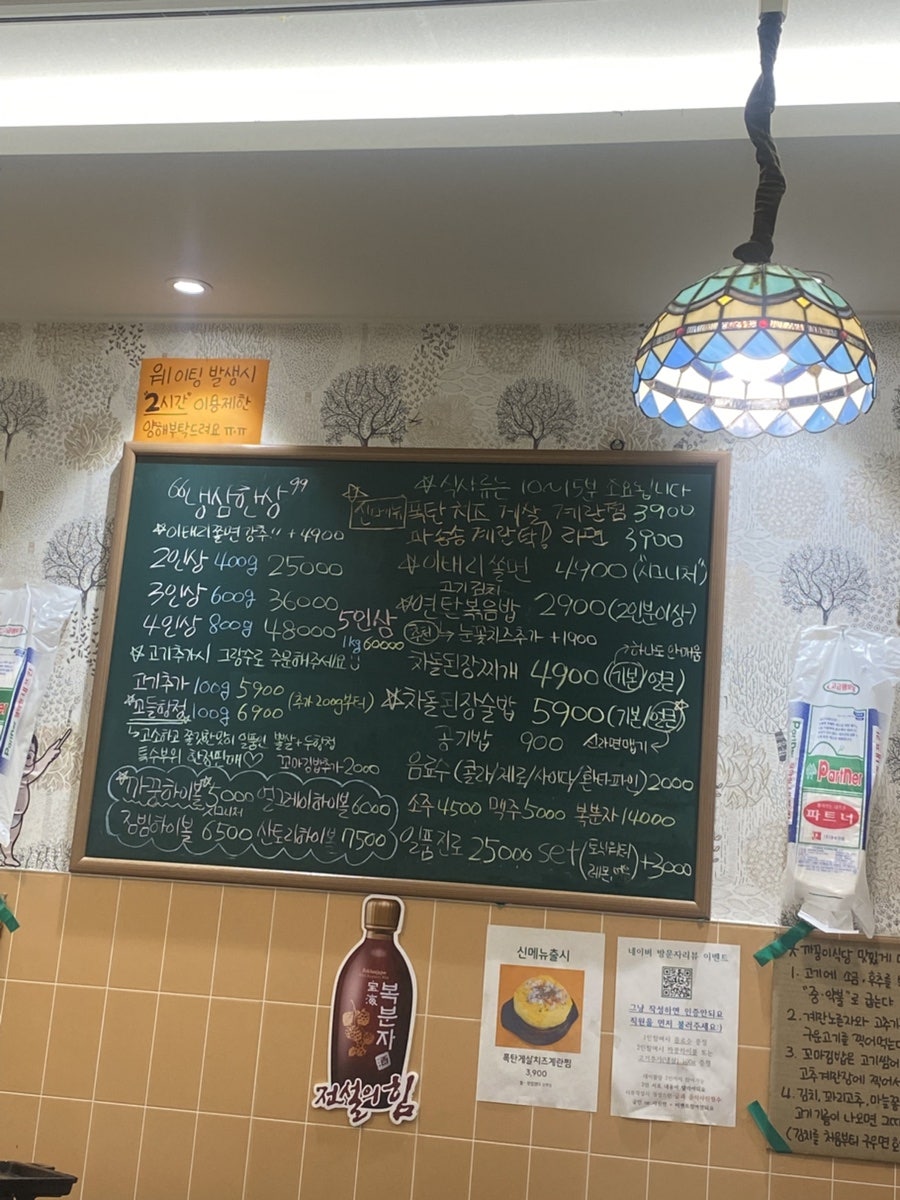 웨이팅 발생시
"2시간" 이용제한
양해부탁드려요 ㅠ.ㅠ
"냉삼한상"
☆이태리쫄면 강추!! +4900
2인상 400g 25000
3인상 600g 36000
4인상 800g 48000
5인상
1kg 60000
☆고기추가시 그람수로 주문해주세요
고기추가 100g 5900 (추가 200g부터)
☆꼬들항정 100g 6900
특수부위 한정판매♡
꼬마김밥추가 2000
☆까꿍하이볼☆ 5000 얼그레이하이볼 6000
시그니처
짐빔하이볼 6500 산토리하이볼 7500
☆식사류는 10~15분 소요됩니다
☆신메뉴 폭탄치즈 게살 계란찜 3900
파송송 계란탁! 라면 3900
☆이태리쫄면 4900 ("시그니처")
고기김치
☆연탄볶음밥 2900 (2인분이상)
추천 눈꽃치즈추가 +1900
하나도 안매움
차돌된장찌개 4900 (기본/얼큰)
☆차돌된장술밥 5900 (기본/얼큰)
공기밥 900
신라면맵기
음료수 (콜라/제로/사이다/환타파인) 2000
소주 4500 맥주 5000 복분자 14000
일품진로 25000 set (토닉워터 레몬) +3000
고급형
Partner
파트너
복분자
전설의 힘
신메뉴출시
폭탄게살치즈계란찜
3,900
네이버 방문자리뷰 이벤트
그냥 작성하면 인증안되요
직원을 먼저 불러주세요:)
☆까꿍이식당 맛있게
1. 고기에 소금, 후추를
"중·약불"로 굽는다
2. 계란노른자와 고추가
구운고기를 찍어먹는다
3. 꼬마김밥은 고기쌈에
고추계란장에 찍어서
4. 김치, 꽈리고추, 마늘쫑
고기기름이 나오면 그때
(김치를 처음부터 구우면